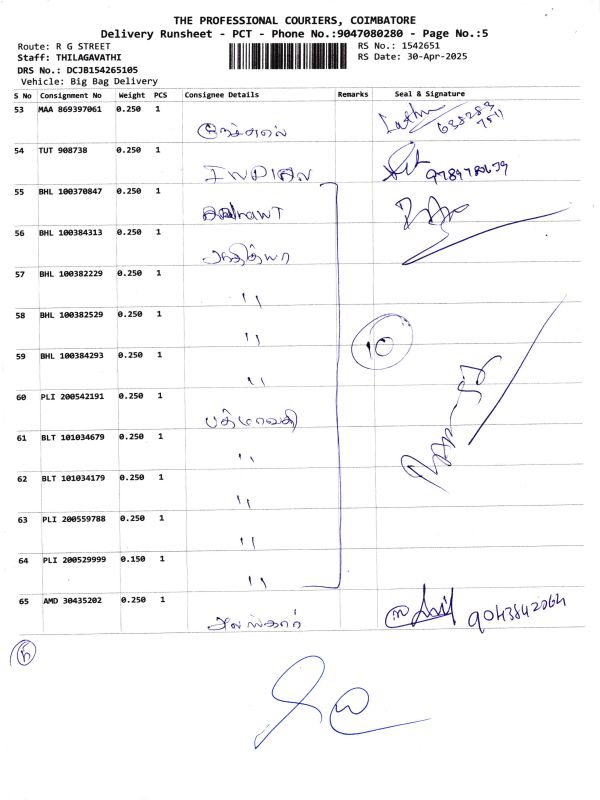 THE PROFESSIONAL COURIERS, COIMBATORE
Delivery Runsheet - PCT - Phone No.:9047080280 - Page No.:5
Route: R G STREET
Staff: THILAGAVATHI
DRS No.: DCJB154265105
Vehicle: Big Bag Delivery
RS No.: 1542651
RS Date: 30-Apr-2025
S No Consignment No Weight PCS Consignee Details Remarks Seal & Signature
53 MAA 869397061 0.250 1
54 TUT 908738 0.250 1 9789780679
55 BHL 100370847 0.250 1
56 BHL 100384313 0.250 1 ஆதித்யா
57 BHL 100382229 0.250 1 "
58 BHL 100382529 0.250 1 "
59 BHL 100384293 0.250 1 "
10
60 PLI 200542191 0.250 1 பத்மாவதி
61 BLT 101034679 0.250 1 "
62 BLT 101034179 0.250 1 "
63 PLI 200559788 0.250 1 "
64 PLI 200529999 0.150 1 "
65 AMD 30435202 0.250 1 அலங்கார் 9043842064